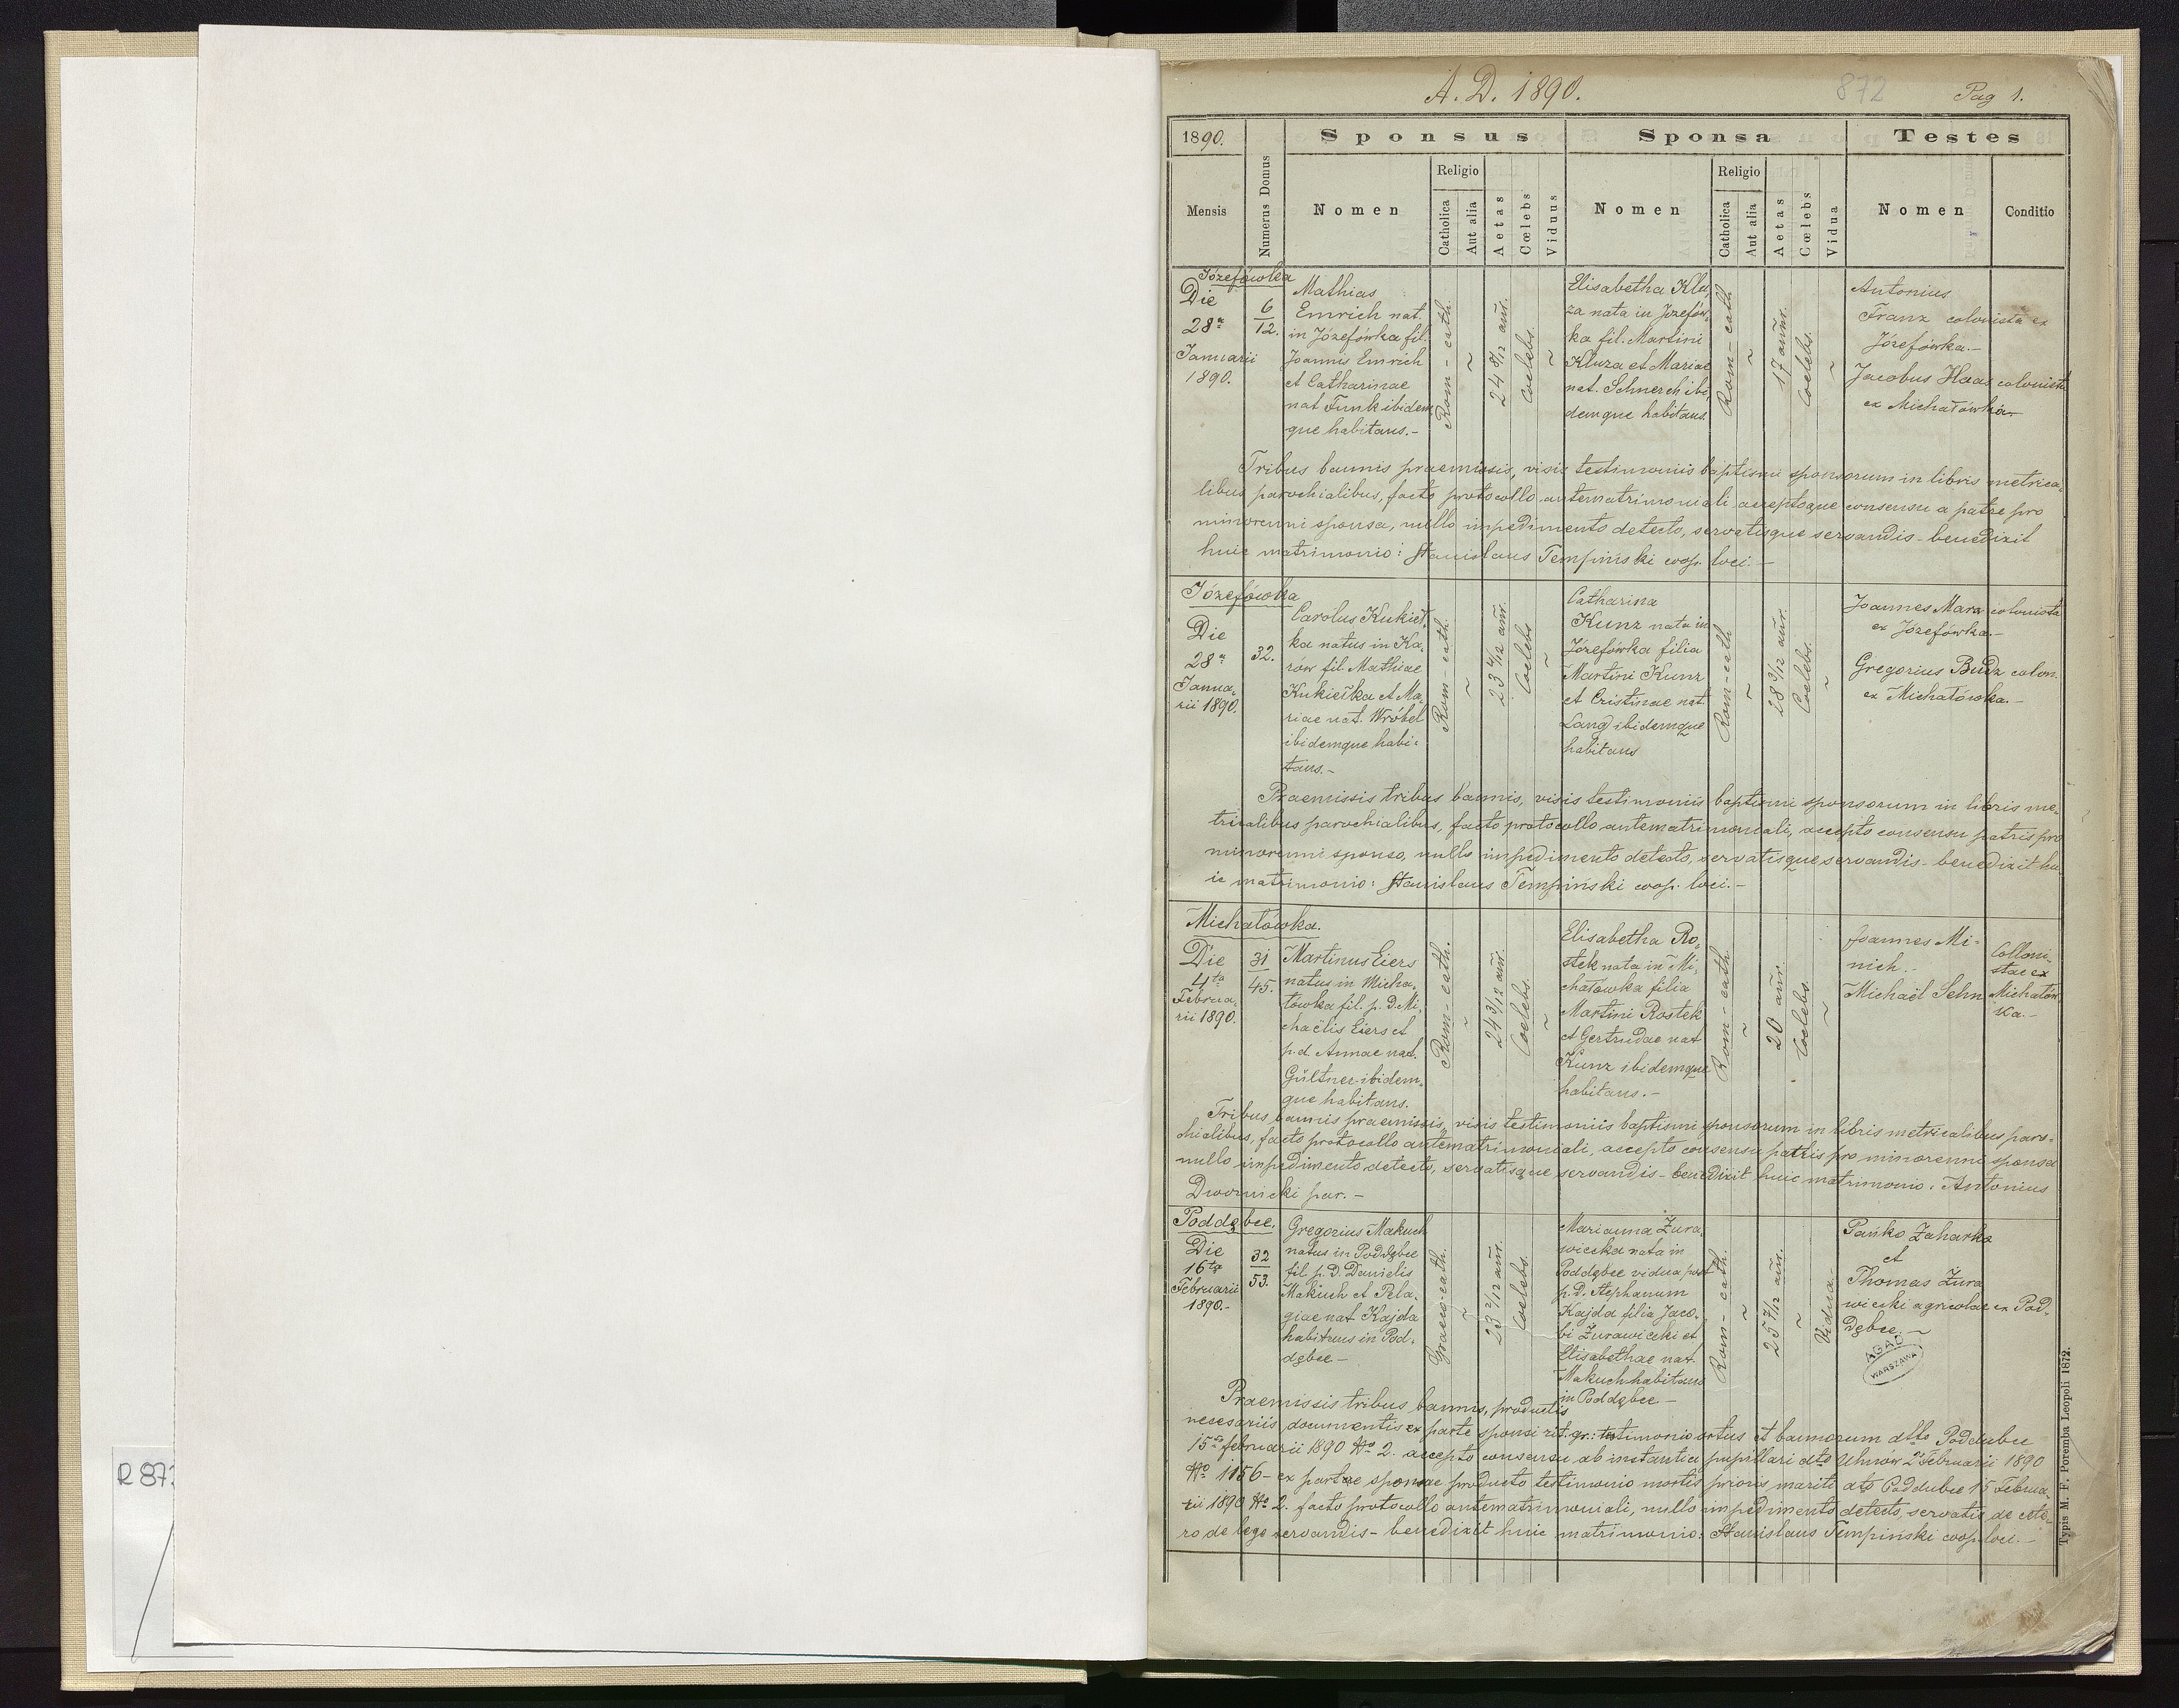 A. D. 1890.
872
Pag 1.
1890.
Sponsus
Sponsa
Testes
Mensis
Numerus Domus
Nomen
Religio
Catholica
Aut alia
Aetas
Cœlebs
Viduus
Nomen
Religio
Catholica
Aut alia
Aetas
Cœlebs
Vidua
Nomen
Conditio
Józefówka
Die
28ª
Januarii
1890.
6
12.
Mathias
Emrich nat.
in Józefówka fil.
Joannis Emrich
et Catharinae
nat Funk ibidem
que habitans.-
Rom - cath.
~
24 8/12 ann.
Coelebs.
~
Elisabetha Klu,
za nata in Józefów,
ka fil. Martini
Kluza et Mariae
nat. Schnerch ibi,
demque habitans.
Rom - cath
~
17 annr.
Coelebs.
~
Antonius
Franz colonista ex
Józefówka.-
Jacobus Haas colonista
ex Michałówka.-
Tribus bannis praemissis, visis testimoniis baptismi sponsorum in libris metrica,
libus parochialibus, facto protocollo antematrimoniali acceptoque consensu a patre pro
minorenni sponsa, nullo impedimento detecto, servatisque servandis - benedixit
huic matrimonio: Stanislaus Tempiński coop. loci.-
Józefówka
Die
28ª
Janua,
rii 1890.
32.
Carolus Kukieł,
ka natus in Ka,
rów fil. Mathiae
Kukiełka et Ma,
riae nat. Wróbel
ibidemque habi-
tans.-
Rom - cath.
~
23 4/12 anr.
Coelebs
~
Catharina
Kunz nata in
Józefówka filia
Martini Kunz
et Cristinae nat.
Lang ibidemque
habitans
Rom - cath
~
28 3/12 anr.
Coelebs.
~
Joannes Mara colonista
ex Józefówka.-
Gregorius Budz colon.
ex Michałówka.-
Praemissis tribus bannis, visis testimoniis baptismi sponsorum in libris me,
tricalibus parochialibus, facto protocollo antematrimoniali, accepto consensu patris pro
minorenni sponso, nullo impedimento detecto, servatisque servandis - benedixit hu
ic matrimonio: Stanislaus Tempiński coop. loci.-
Michałówka.
Die
4ta
Februa,
rii 1890.
31
45.
Martinus Eiers
natus in Micha,
łówka fil. p. D. Mi,
chaëlis Eiers et
p.d. Annae nat.
Gültner ibidem,
que habitans.
Rom - cath.
~
24 3/12 anr.
Coelebs.
~
Elisabetha Ro,
stek nata in Mi,
chałówka filia
Martini Rostek
et Gertrudae nat
Kunz ibidemque
habitans.-
Rom - cath.
~
20 anr.
Coelebs.
~
Joannes Mi-
nich.-
Michaël Sehn
Colloni-
stae ex
Michałów
ka.-
Tribus bannis praemissis, visis testimoniis baptismi sponsorum in libris metricalibus paro-
chialibus, facto protocollo antematrimoniali, accepto consensu patris pro minorenni sponsa
nullo impedimento detecto, servatisque servandis - benedixit huic matrimonio: Antonius
Dwornicki par.-
Poddębce.
Die
16ta
Februarii
1890.-
32
53.
Gregorius Makuch
natus in Poddębce
fil. p. D. Danielis
Makuch et Pela,
giae nat Kajda
habitans in Pod-
dębce -
Graeco-cath.
~
23 2/12 anr.
Coelebs.
Marianna Żura,
wiecka nata in
Poddębce vidua post
p. D. Stephanum
Kajda filia Jaco,
bi Żurawiecki et
Elisabethae nat.
Makuch habitans
in Poddębce -
Rom - cath.
~
25 7/12 anr.
~
Vidua.-
Pańko Zaharko
et
Thomas Żura
wiecki agricolae ex Pod,
dębce. ~
AGAD
WARSZAWA
Praemissis tribus bannis, productis
necesariis documentis ex parte sponsi rit. gr.: testimonio ortus et bannorum dtto Poddubce
15 februarii 1890 No 2. accepto consensu ab instantia pupillari dto Uhnów 2 Februarii 1890
No 1156 - ex partae sponsae producto testimonio mortis prioris mariti dto Poddubce 15 Februa,
rii 1890 No 2. facto protocollo antematrimoniali, nullo impedimento detecto, servatis de cete,
ro de lege servandis - benedixit huic matrimonio: Stanislaus Tempiński coop. loci.-
Typis M. F. Poremba Leopoli 1872.
R 87